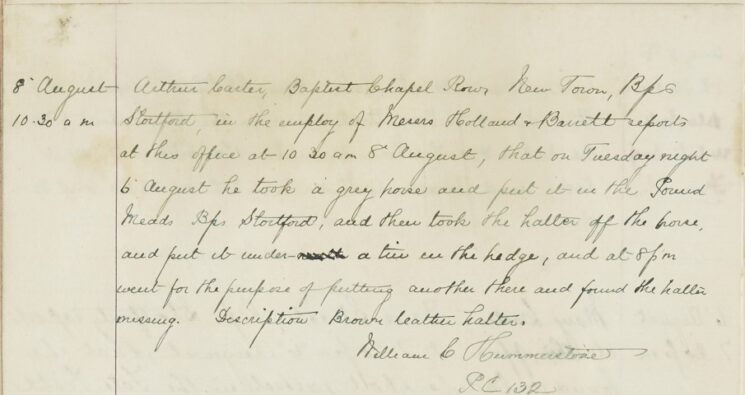 8 August Arthur Carter, Baptist Chapel Row, New Town, Bps
10.30 a m Stortford, in the employ of Messrs Holland & Barrett reports
at this office at 10 30 am 8 August, that on Tuesday night
6 August he took a grey horse and put it in the Pound
Meads Bps Stortford, and then took the halter off the horse,
and put it under a tin in the hedge, and at 8 pm
went for the purpose of putting another there and found the halter
missing. Description Brown leather halter.
William C Hummerstone
PC 132